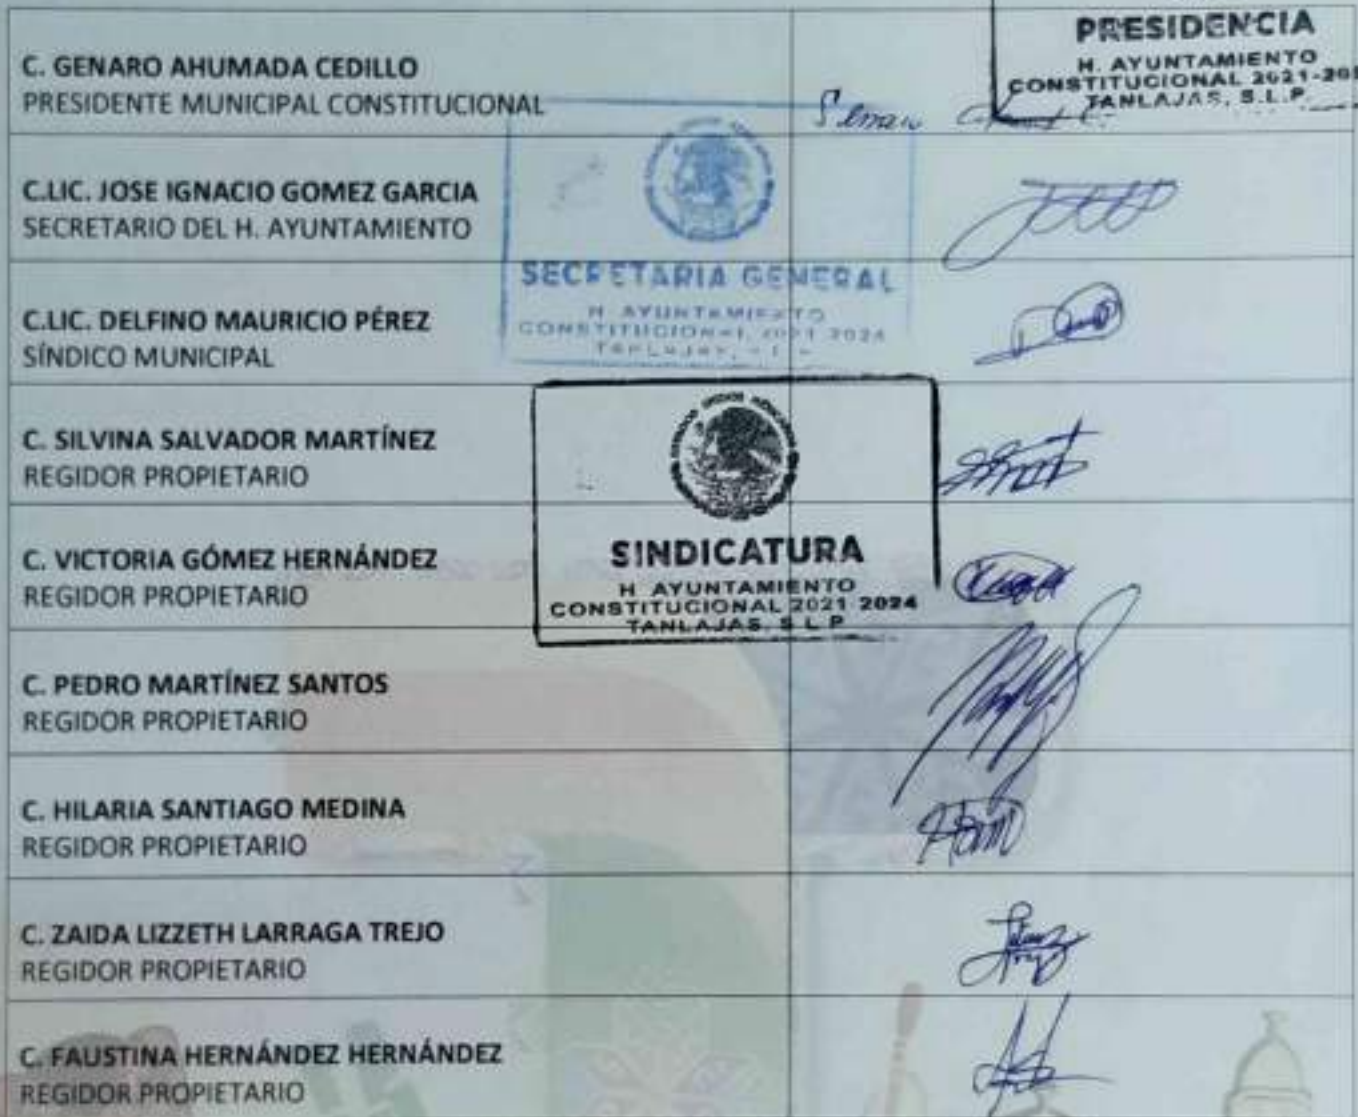 PRESIDENCIA
H. AYUNTAMIENTO
CONSTITUCIONAL 2021-202
TANLAJAS, S.L.P.
C. GENARO AHUMADA CEDILLO
PRESIDENTE MUNICIPAL CONSTITUCIONAL
C.LIC. JOSE IGNACIO GOMEZ GARCIA
SECRETARIO DEL H. AYUNTAMIENTO
SECRETARIA GENERAL
H AYUNTAMIENTO
CONSTITUCIONAL 2021 2024
C.LIC. DELFINO MAURICIO PÉREZ
SÍNDICO MUNICIPAL
C. SILVINA SALVADOR MARTÍNEZ
REGIDOR PROPIETARIO
SINDICATURA
H AYUNTAMIENTO
CONSTITUCIONAL 2021 2024
TANLAJAS, S L P
C. VICTORIA GÓMEZ HERNÁNDEZ
REGIDOR PROPIETARIO
C. PEDRO MARTÍNEZ SANTOS
REGIDOR PROPIETARIO
C. HILARIA SANTIAGO MEDINA
REGIDOR PROPIETARIO
C. ZAIDA LIZZETH LARRAGA TREJO
REGIDOR PROPIETARIO
C. FAUSTINA HERNÁNDEZ HERNÁNDEZ
REGIDOR PROPIETARIO